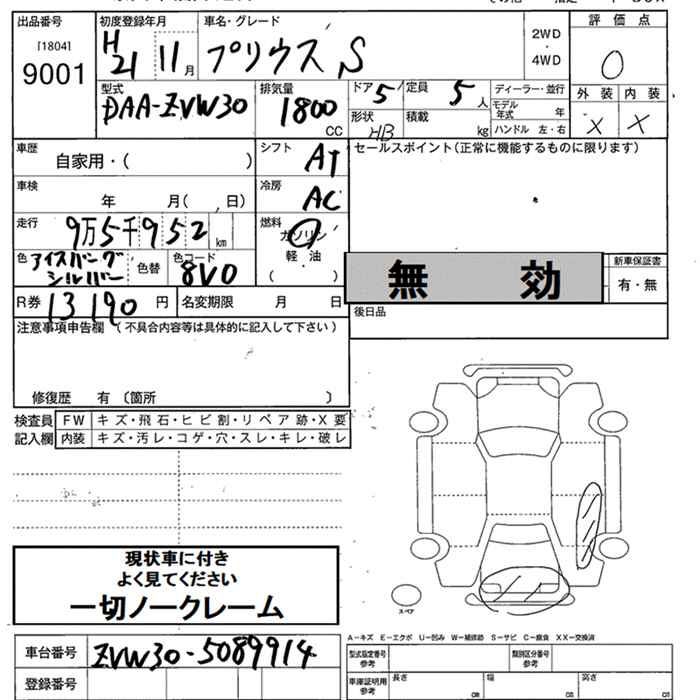 出品番号
[1804]
9001
初度登録年月
H
21 11 月
車名・グレード
プリウス S
2WD
・
4WD
評価点
0
外装 内装
X X
型式
DAA-ZVW30
排気量
1800
CC
ドア 5
定員 5 人
形状 HB
積載 kg
ディーラー・並行
モデル年式 年
ハンドル 左・右
車歴
自家用・( )
シフト
AT
セールスポイント(正常に機能するものに限ります)
車検
年 月( 日)
冷房
AC
走行
9万5千952 km
燃料
ガソリン
軽油
( )
色
アイスバーグ
シルバー
色替
色コード
8V0
無 効
新車保証書
有・無
R券 13190 円
名変期限 月 日
後日品
注意事項申告欄 (不具合内容等は具体的に記入して下さい)
修復歴 有 〔箇所 〕
検査員
記入欄
FW キズ・飛石・ヒビ割・リペア跡・X要
内装 キズ・汚レ・コゲ・穴・スレ・キレ・破レ
現状車に付き
よく見てください
一切ノークレーム
スペア
A－キズ E－エクボ U－凹み W－補修跡 S－サビ C－腐食 XX－交換済
車台番号 ZVW30-5089914
登録番号
型式指定番号
参考
類別区分番号
参考
車庫証明用
参考
長さ cm
幅 cm
高さ cm